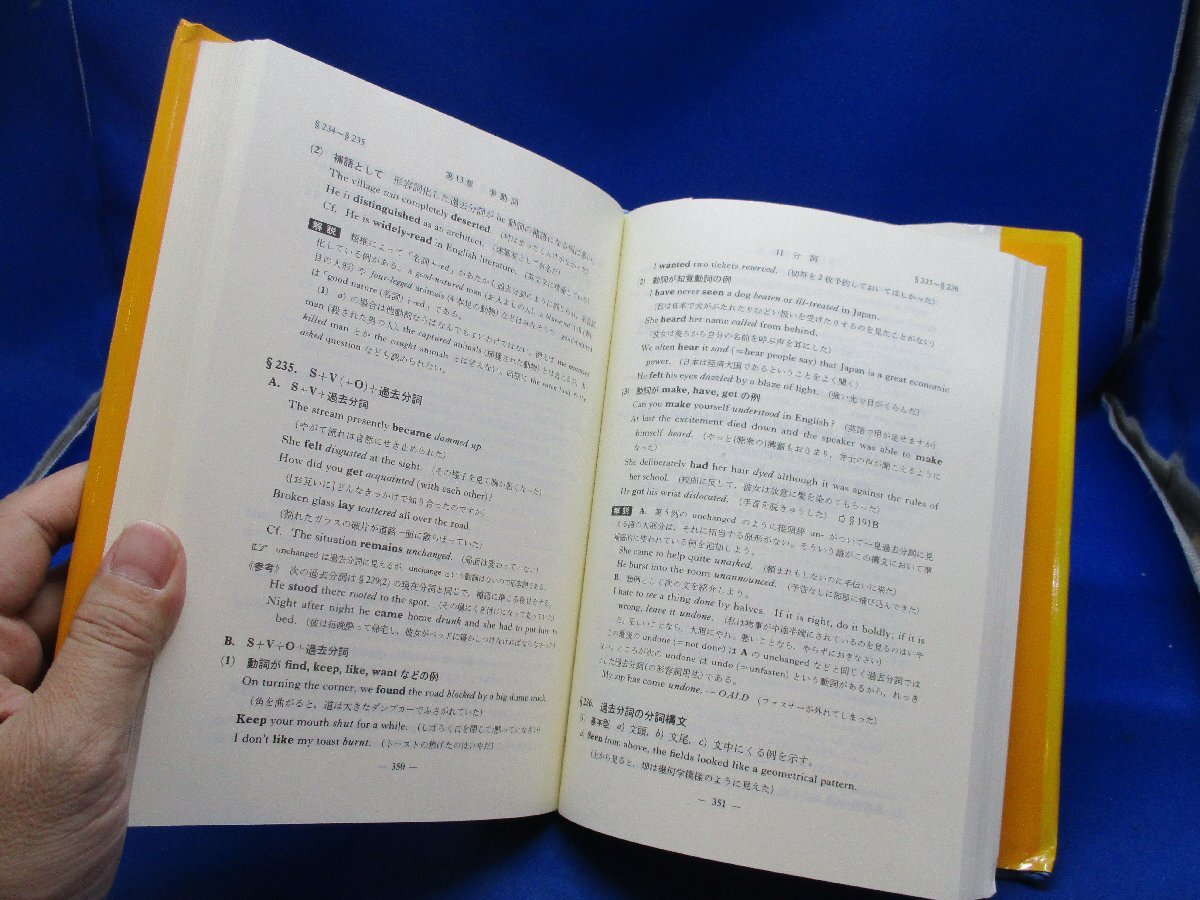 §234~§235
第13章 準動詞
(2) 補語として 形容詞化した過去分詞が be 動詞の補語になる
The village was completely deserted. (村はまったく人けがなかった)
He is distinguished as an architect. (建築家として有名だ)
Cf. He is widely-read in English literature. (英文学に
解説 類推によって「名詞+-ed」があたかも過去分詞のように
化している例がある。a good-natured man (お人よしの人)
目の人影) や four-legged animals (4本足の動物) などは
は "good nature (名詞) + -ed" である。
(1) a) の場合は他動詞ならばなんでもよいわけではない。例えば the murdered
man (殺された男の人), the captured animals (捕獲された動物) とは言えるが, the
killed man とか the caught animals とは言えない。
asked question なども認められない。
§235. S+V(+O)+過去分詞
A. S+V+過去分詞
The stream presently became dammed up.
(やがて流れは自然にせき止められた)
She felt disgusted at the sight. (その様子を見て胸が悪くなった)
How did you get acquainted (with each other)?
([お互いに]どんなきっかけで知り合ったのですか)
Broken glass lay scattered all over the road.
(割れたガラスの破片が道路一面に散らばっていた)
Cf. The situation remains unchanged. (局面は変わっていない)
unchanged は過去分詞に見えるが, unchange という動詞はないので形容詞である。
《参考》 次の過去分詞は §229(2) の現在分詞と同じで, 補語に準じる役目をする。
He stood there rooted to the spot. (その場にくぎ付けになって立っていた)
Night after night he came home drunk and she had to put him to
bed. (彼は毎晩酔って帰宅し, 彼女がベッドに寝かしつけなければならなかった)
B. S+V+O+過去分詞
(1) 動詞が find, keep, like, want などの例
On turning the corner, we found the road blocked by a big dump truck.
(角を曲がると, 道は大きなダンプカーでふさがれていた)
Keep your mouth shut for a while. (しばらく口を閉じて黙っていなさい)
I don't like my toast burnt. (トーストの焦げたのはいやだ)
— 350 —
II 分詞
§235~§236
I wanted two tickets reserved. (切符を2枚予約しておいてほしかった)
(2) 動詞が知覚動詞の例
I have never seen a dog beaten or ill-treated in Japan.
(私は日本で犬がぶたれたりひどい扱いを受けたりするのを見たことがない)
She heard her name called from behind.
(彼女は後ろから自分の名前を呼ぶ声を耳にした)
We often hear it said (=hear people say) that Japan is a great economic
power. (日本は経済大国であるということをよく聞く)
He felt his eyes dazzled by a blaze of light. (強い光で目がくらんだ)
(3) 動詞が make, have, get の例
Can you make yourself understood in English? (英語で用が足せますか)
At last the excitement died down and the speaker was able to make
himself heard. (やっと[聴衆の]興奮もおさまり, 弁士の声が聞こえるように
なった)
She deliberately had her hair dyed although it was against the rules of
her school. (校則に反して, 彼女は故意に髪を染めてもらった)
He got his wrist dislocated. (手首を脱きゅうした) §191B
解説 A. 第5例の unchanged のように接頭辞 un- がついて一見過去分詞に見
える語の大部分は, それに相当する原形がない。そういう語がこの構文において準
補語的に使われている例を追加しよう。
She came to help quite unasked. (頼まれもしないのに手伝いに来た)
He burst into the room unannounced. (予告なしに部屋に飛び込んできた)
B. 類例として次の文を紹介しよう。
I hate to see a thing done by halves. If it is right, do it boldly; if it is
wrong, leave it undone. (私は物事が中途半端にされているのを見るのはいや
だ。正しいことなら, 大胆にやれ。悪いことなら, やらずにおきなさい)
この最後の undone (=not done) は A の unchanged などと同じく過去分詞では
ところが次の undone は undo (=unfasten) という動詞があるから, れっき
とした過去分詞(の形容詞用法)である。
My zip has come undone. — OALD (ファスナーが外れてしまった)
§236. 過去分詞の分詞構文
(1) 基本型 a) 文頭, b) 文尾, c) 文中にくる例を示す。
a) Seen from above, the fields looked like a geometrical pattern.
(上から見ると, 畑は幾何学模様のように見えた)
— 351 —